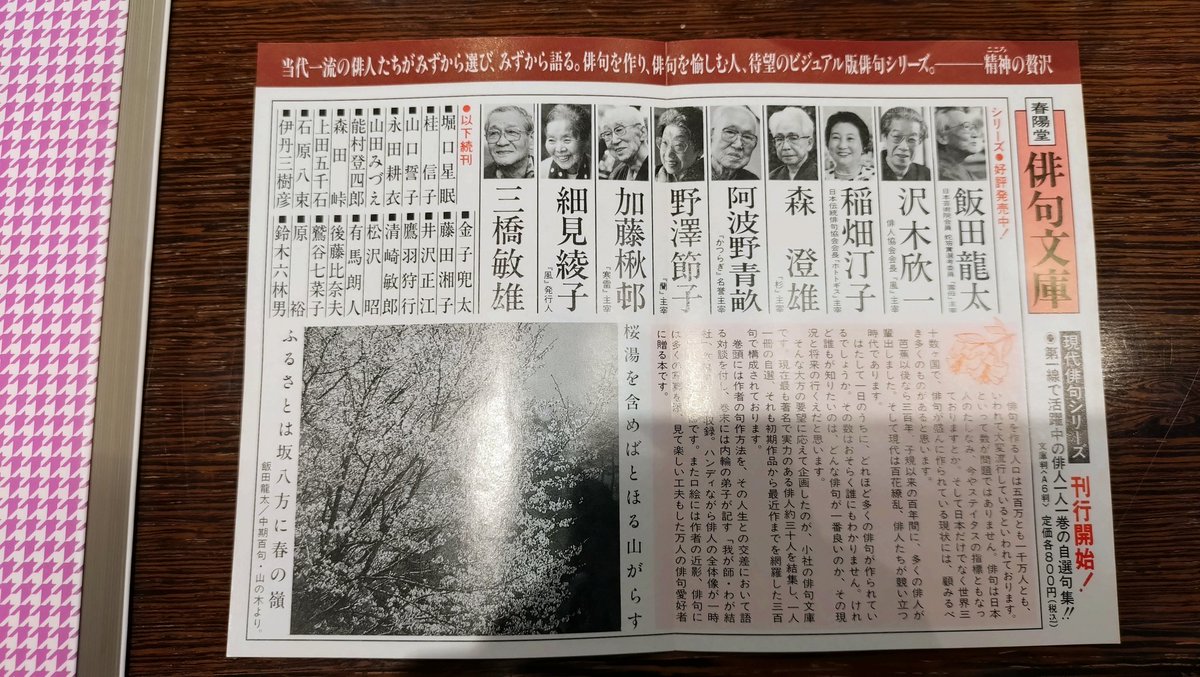 当代一流の俳人たちがみずから選び、みずから語る。俳句を作り、俳句を愉しむ人、待望のビジュアル版俳句シリーズ。――精神の贅沢
こころ
春陽堂
俳句文庫
現代俳句シリーズ 刊行開始!
●第一線で活躍中の俳人一人一巻の自選句集!!
文庫判(A6判) 定価各800円(税込)
シリーズ●好評発売中!
飯田龍太
日本芸術院会員 蛇笏賞選考委員 「雲母」主宰
沢木欣一
俳人協会会長 「風」主宰
稲畑汀子
日本伝統俳句協会会長 「ホトトギス」主宰
森 澄雄
「杉」主宰
阿波野青畝
「かつらぎ」名誉主宰
野澤節子
「蘭」主宰
加藤楸邨
「寒雷」主宰
細見綾子
「風」発行人
三橋敏雄
●以下続刊
■堀口星眠
■桂 信子
■山口誓子
■永田耕衣
■山田みづえ
■能村登四郎
■森田 峠
■上田五千石
■石原八束
■伊丹三樹彦
■金子兜太
■藤田湘子
■井沢正江
■鷹羽狩行
■清崎敏郎
■松沢 昭
■有馬朗人
■後藤比奈夫
■鷲谷七菜子
■原 裕
■鈴木六林男
俳句を作る人口は五百万とも、一千万人とも、
いわれて大変流行しているといわれております。俳句は日本
人のたしなみ、今やステイタスの指標ともなっ
ておりますとか、そして日本だけでなく世界三
十数ヶ国で、俳句が盛んに作られている現状には、顧みるべ
き多くのものがあると思います。
芭蕉以後なら三百年、子規以来の百年間に、多くの俳人が
輩出しました。そして現代は百花繚乱、俳人たちが競い立つ
時代であります。
はたして一日のうちに、どれほど多くの俳句が作られてい
るでしょうか。その数はおそらく誰にもわかりません。けれ
ど誰もが知りたいのは、どんな俳句が一番良いのか、その現
況と将来の行くえだと思います。
そんな大方の要望に応えて企画したのが、小社の俳句文庫
です。現在最も著名で実力のある俳人約三十人を結集し、一人
一冊の自選、それも初期作品から最近作までを網羅した三百
句で構成されております。
巻頭には作者の句作方法を、その人生との交差において語
る対談を付し、巻末には内輪の弟子が記す「我が師・わが結
収録。ハンディながら俳人の全体像が一時
です。また口絵には作者の近影、俳句に
は多くの写真を添え、見て楽しい工夫もした万人の俳句愛好者
に贈る本です。
桜湯を含めばとほる山がらす
ふるさとは坂八方に春の嶺
飯田龍太/中期百句・山の木より。